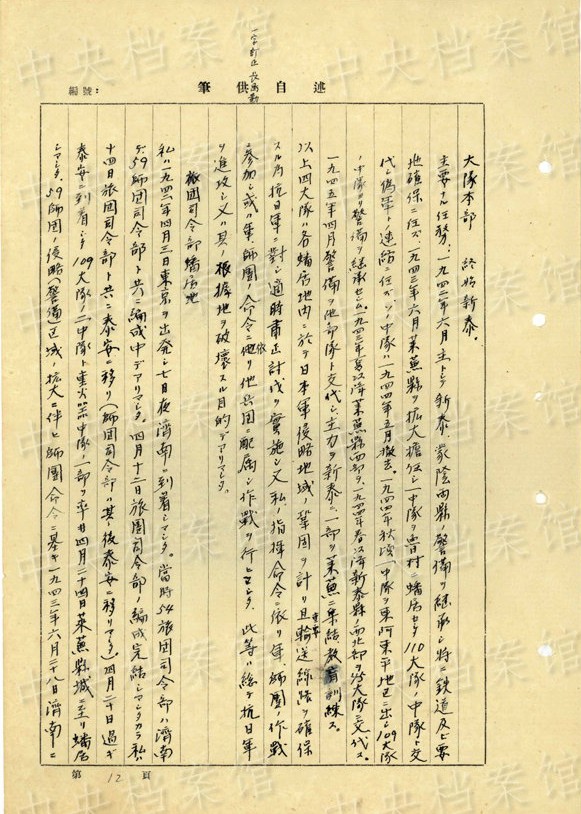 一字訂正 長島勤
編號：
筆供自述
大隊本部 終始新泰。
主要ナル任務：一九四二年六月主トシテ新泰、蒙陰両縣ノ警備ヲ継承シ特ニ鉄道及ビ要
地確保ニ任ズ 一九四三年六月莱蕪縣ヲ拡大擔任シ一中隊ヲ魯村ニ蟠居セル110大隊ノ中隊ト交
代シ偽軍ト連絡ニ任ズ。ソノ中隊ハ一九四四年五月撤去。一九四四年秋頃一中隊ヲ東阿東平地区ニ出シ109大隊
ノ中隊ヨリ警備ヲ継承セシム。一九四三年夏以降莱蕪縣西部ヲ、一九四四年春以降新泰縣ノ西北部ヲ
大隊ニ交代ス。
一九四五年四月警備ヲ他部隊ト交代シ、主力ヲ新泰ニ、一部ヲ莱蕪ニ集結教育訓練ス。
以上四大隊ハ各蟠居地内ニ於テ日本軍侵略地域ノ鞏固ヲ計リ且軍事輸送線路ヲ確保
スル為抗日軍ニ對シ適時粛正討伐ヲ実施シ又私ノ指揮命令ニ依リ軍、師團ノ作戰
ニ参加シ或ハ軍師團ノ命令ニ依リ他兵団ニ配属シ作戰ヲ行ヒマシタ、此等ハ総テ抗日軍
ヲ進攻シ又ハ其ノ根拠地ヲ破壊スル目的デアリマシタ。
旅団司令部蟠居地
私ハ一九四二年四月三日東京ヲ出発シ七日夜濟南ニ到着シマシタ。當時54旅団司令部ハ濟南
デ、59師団司令部ト共ニ編成中デアリマシタ。四月十二日旅團司令部ノ編成完結シマシタカラ私ハ
十四日旅団司令部ト共ニ泰安ニ移リ（師団司令部ハ其ノ後泰安ニ移リマシタ）四月二十日過ギ
泰安ニ到着シタ109大隊ノ二中隊ト重火器中隊ノ一部ヲ率ヰ四月二十四日莱蕪縣城ニ至リ蟠居
シマシタ。59師團ノ侵略（警備）区域ノ拡大ニ伴ヒ師團命令ニ基キ一九四三年六月二十八日濟南ニ
第12頁
中央档案馆